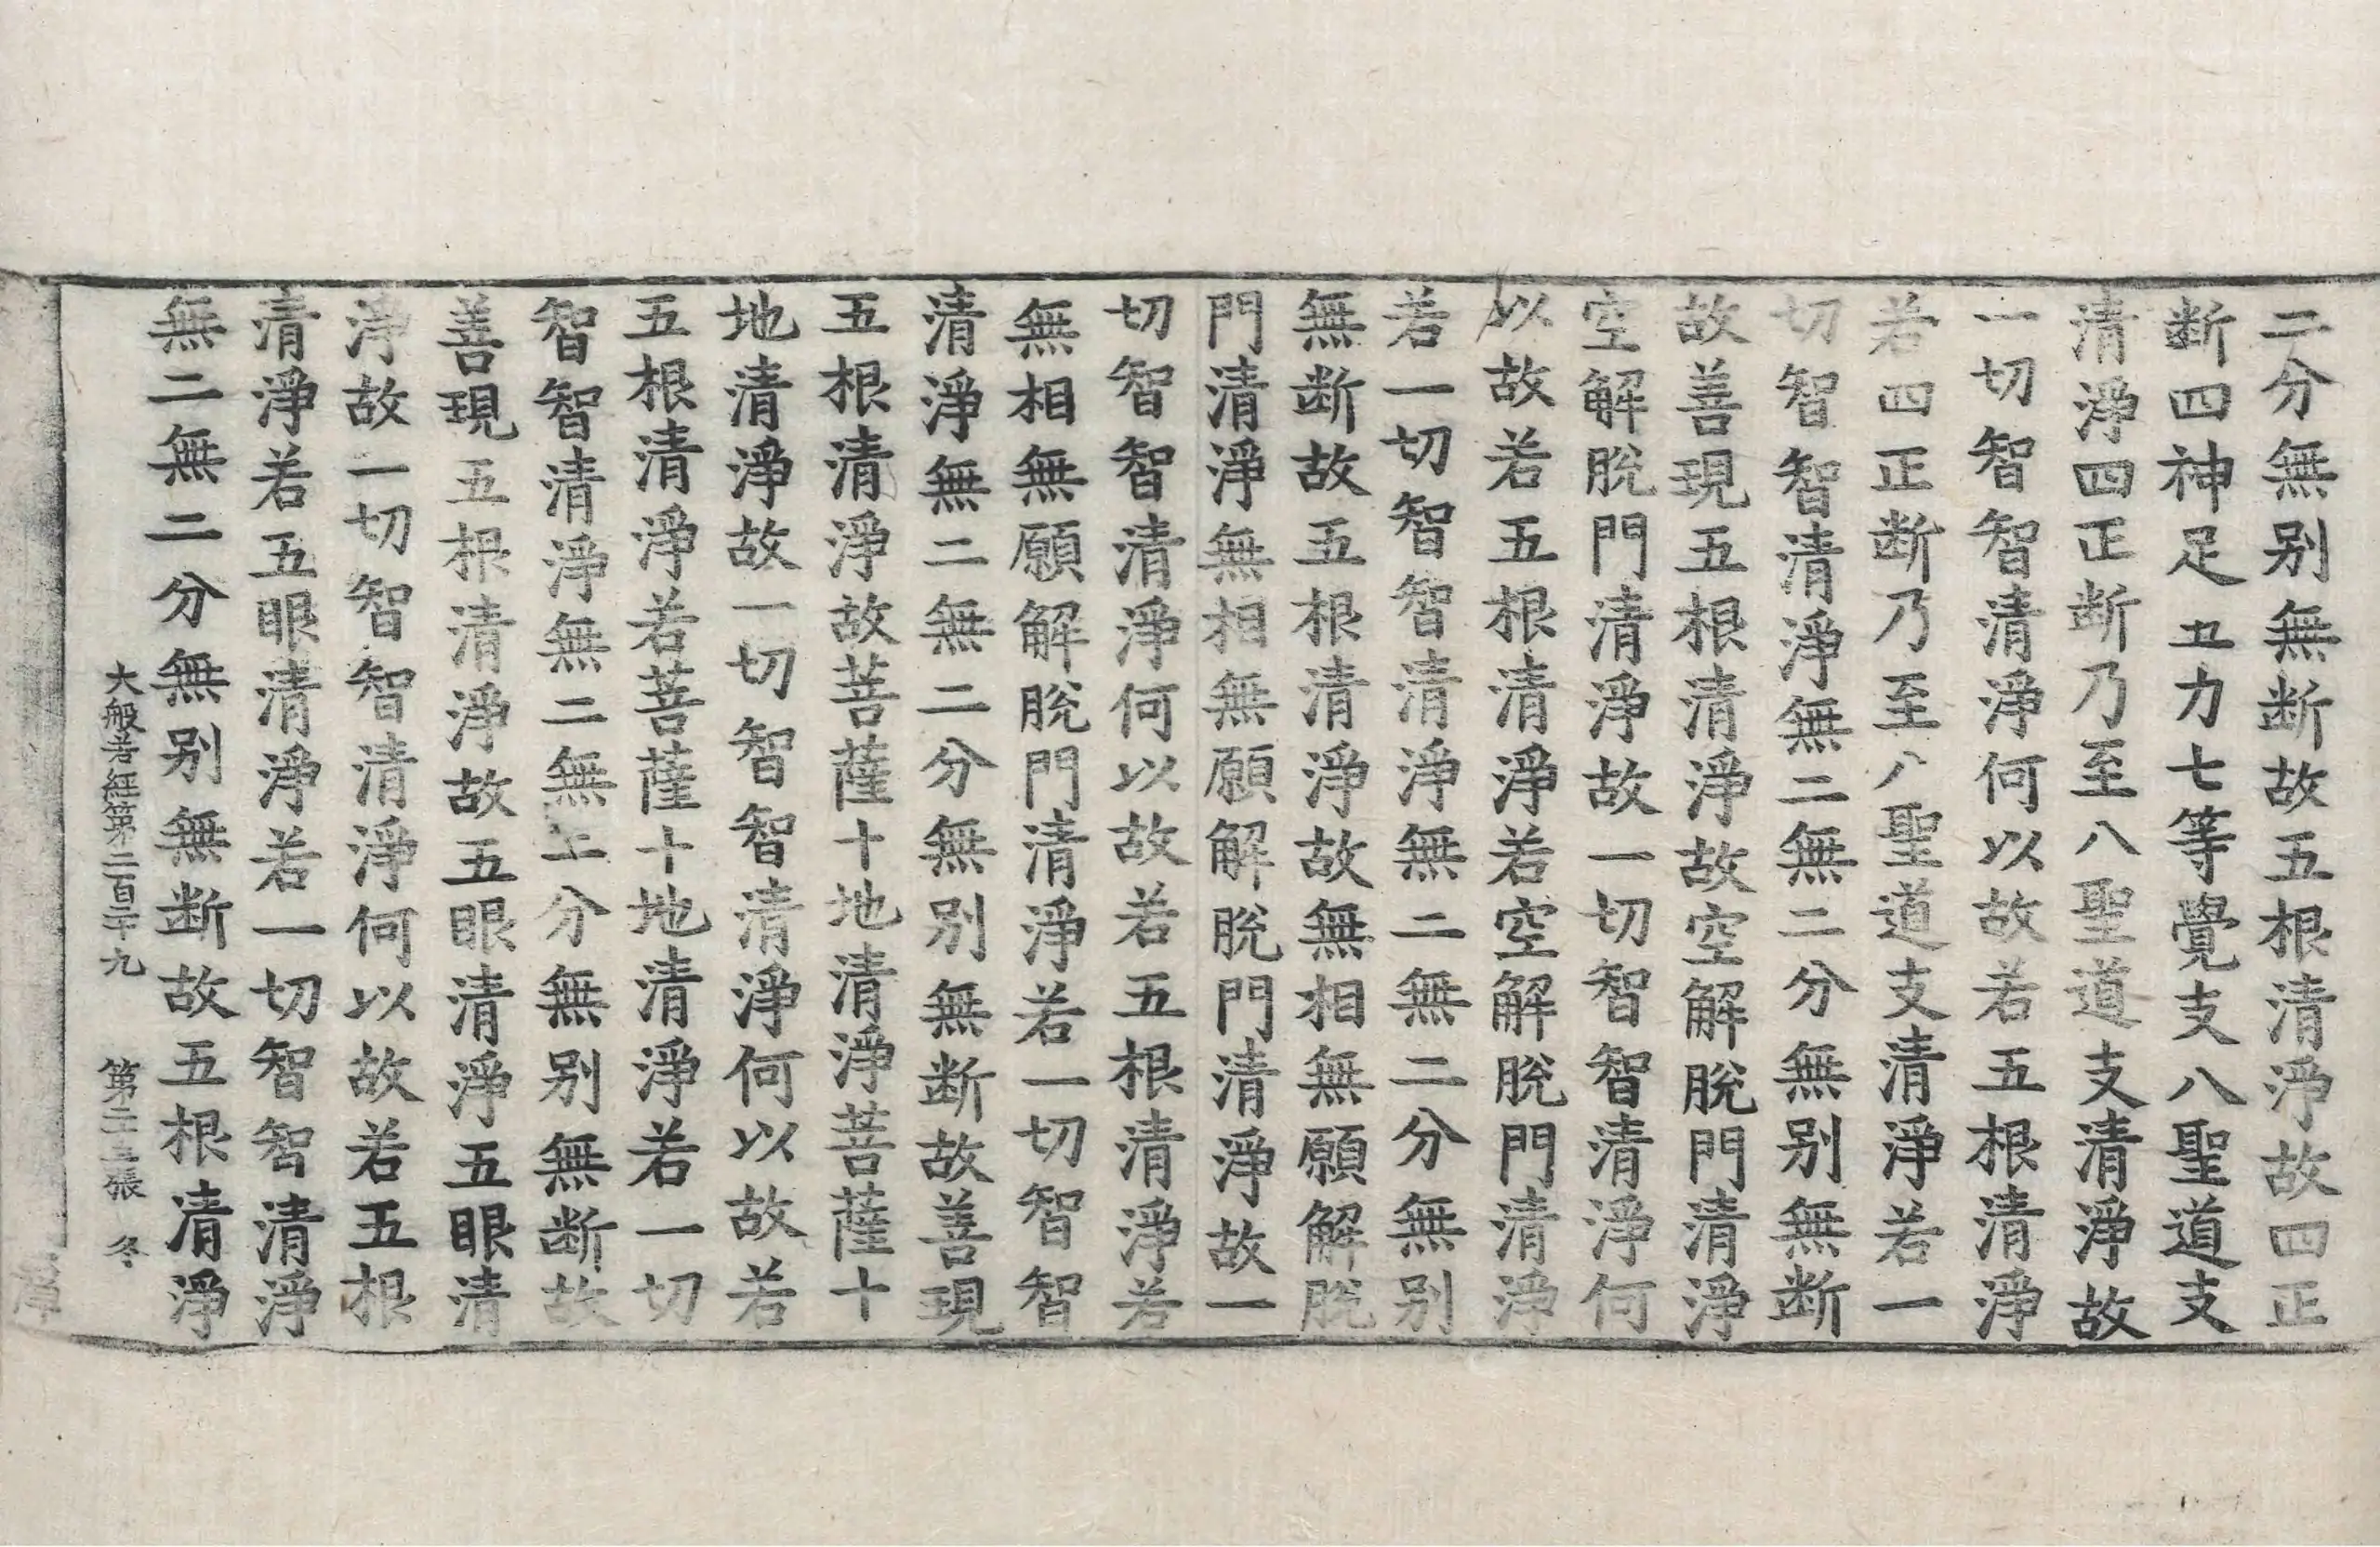 二分無别無断故五根清淨故四正
断四神足五力七等覺支八聖道支
清淨四正断乃至八聖道支清淨故
一切智智清淨何以故若五根清淨
若四正断乃至八聖道支清淨若一
切智智清淨無二無二分無别無断
故善現五根清淨故空解脫門清淨
空解脫門清淨故一切智智清淨何
以故若五根清淨若空解脫門清淨
若一切智智清淨無二無二分無别
無断故五根清淨故無相無願解脫
門清淨無相無願解脫門清淨故一
切智智清淨何以故若五根清淨若
無相無願解脫門清淨若一切智智
清淨無二無二分無别無断故善現
五根清淨故菩薩十地清淨菩薩十
地清淨故一切智智清淨何以故若
五根清淨若菩薩十地清淨若一切
智智清淨無二無二分無别無断故
善現五根清淨故五眼清淨五眼清
淨故一切智智清淨何以故若五根
清淨若五眼清淨若一切智智清淨
無二無二分無别無断故五根清淨
大般若経第二百二十九 第二十三張 冬